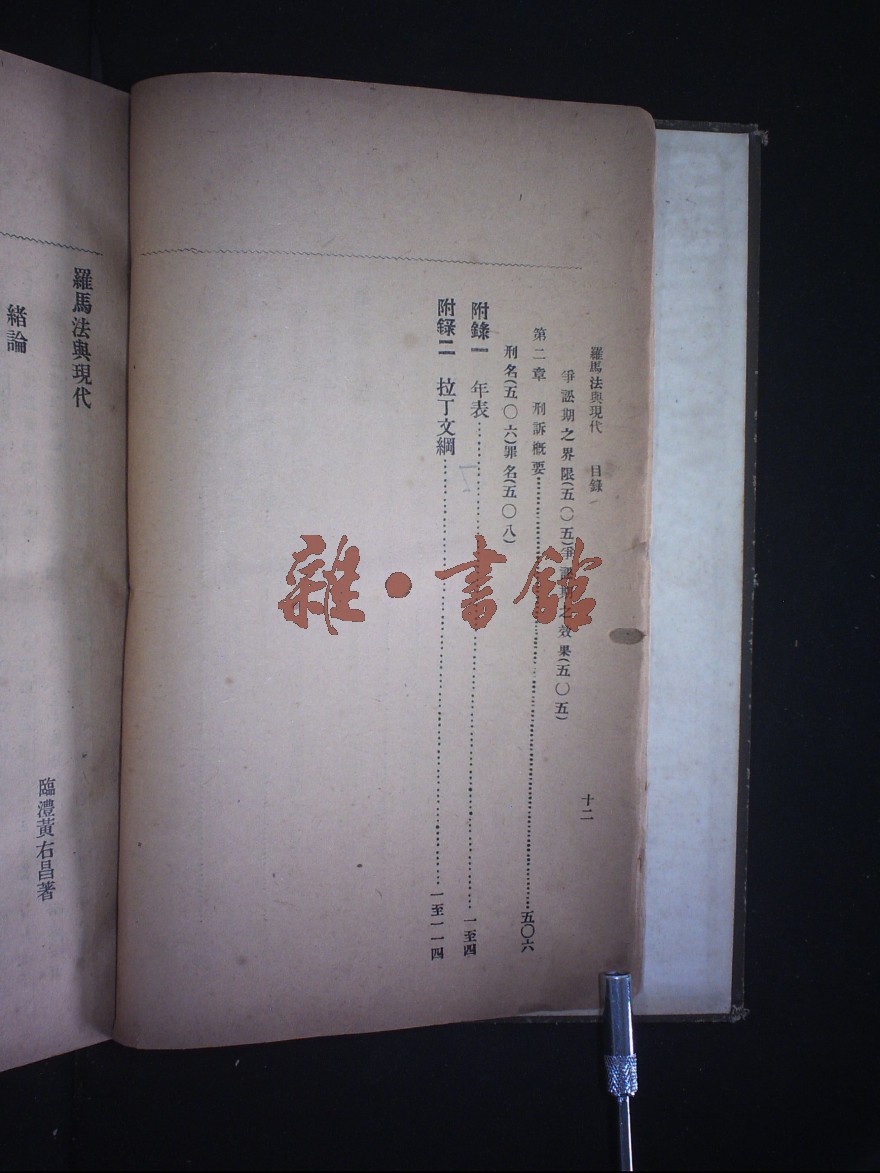 羅馬法與現代 目錄 十二
爭訟期之界限(五〇五)爭訟期之效果(五〇五)
第二章 刑訴概要 五〇六
刑名(五〇六)罪名(五〇八)
附錄一 年表 一至四
附錄二 拉丁文綱 一至一一四
羅馬法與現代
臨澧黃右昌著
緒論
雜·書館